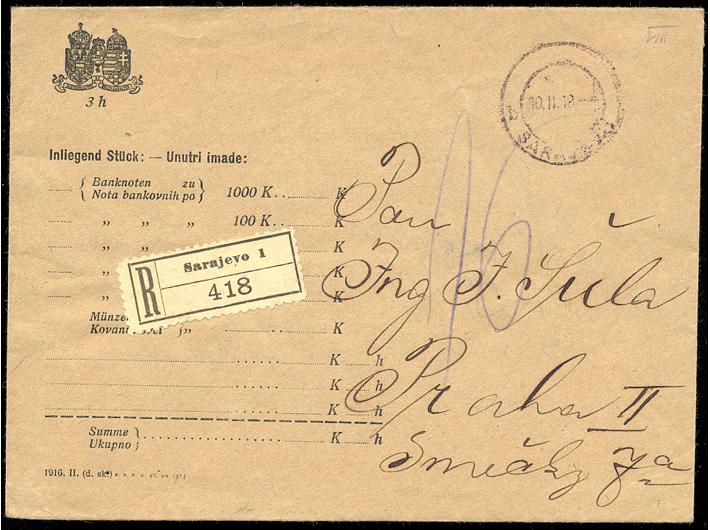 VIII
3 h
10.II.18
SARAJEVO
Inliegend Stück: — Unutri imade:
Banknoten zu
Nota bankovnih po
1000 K.. K
„ „ „ 100 K.. K
„ K
„ K
„ K
Sarajevo 1
R 418
Münzen
Kovani „ K h
K h
K h
K h
Summe
Ukupno K h
1916. II. (d. sk.)
16
Pan
Ing J. Šula
Praha II
Smečky 7a